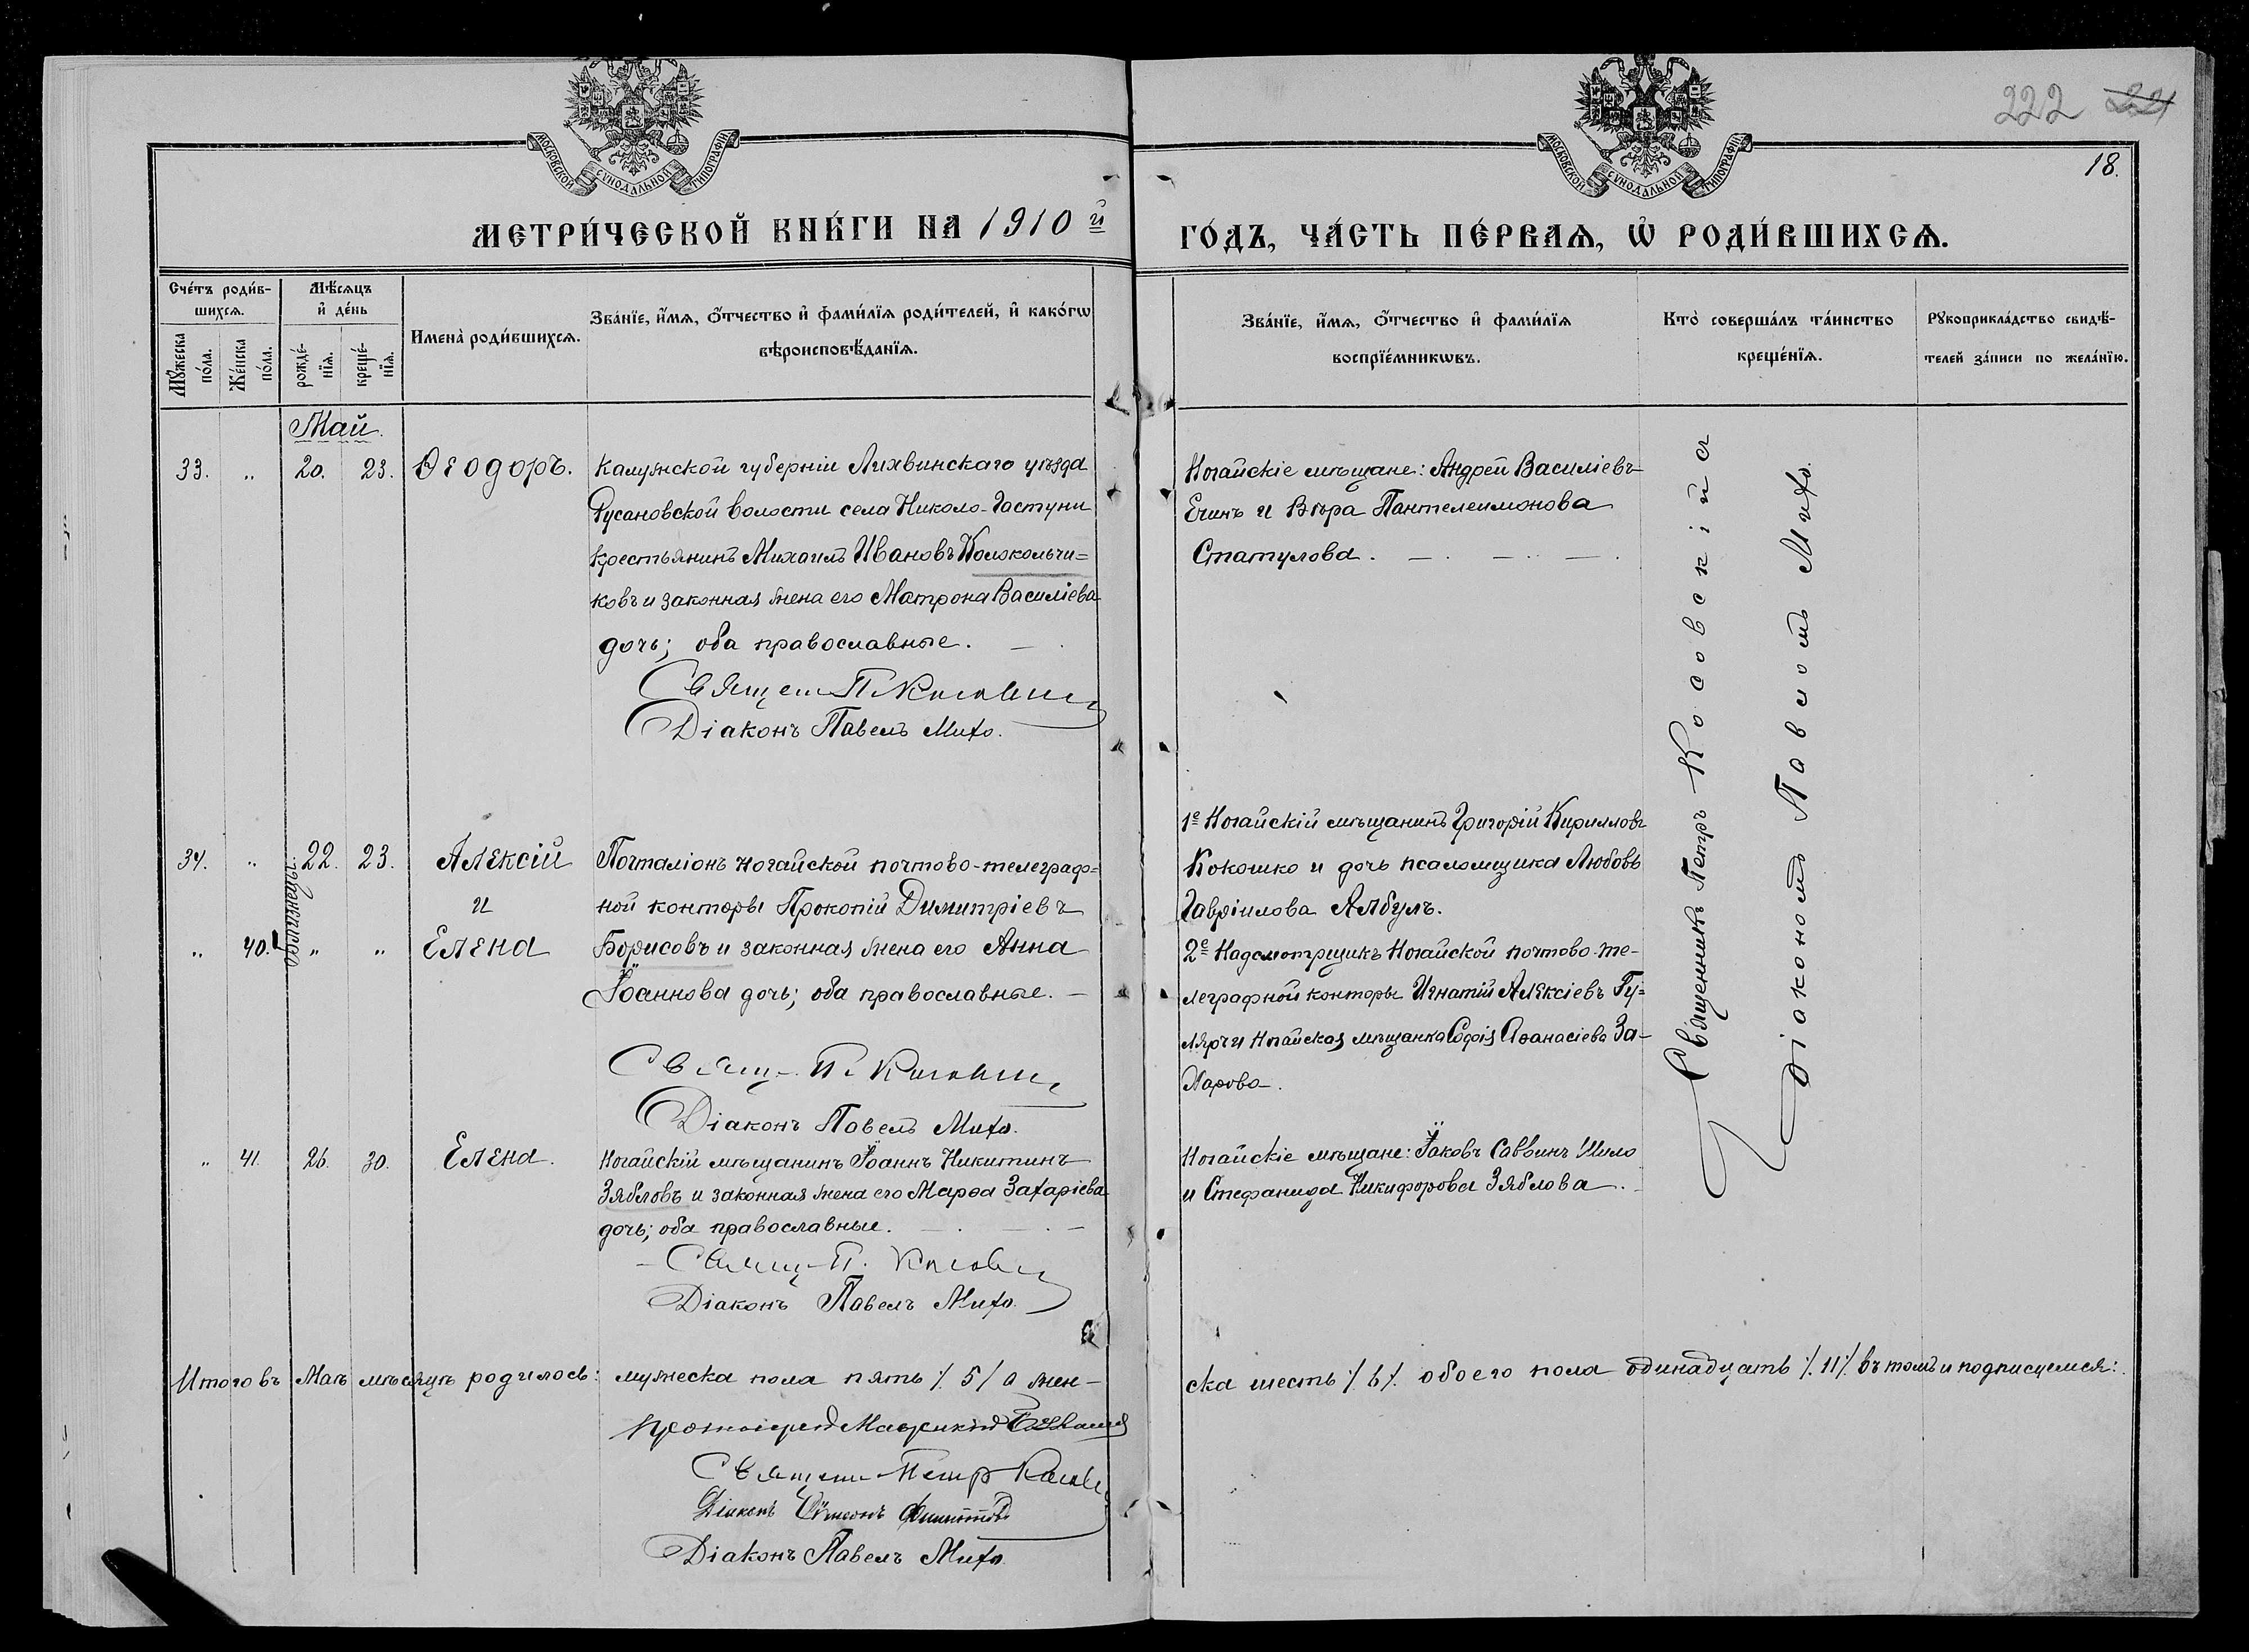 МОСКОВСКОЙ СУНОДАЛЬНОЙ ТИПОГРАФІИ
МОСКОВСКОЙ СУНОДАЛЬНОЙ ТИПОГРАФІИ
222 221
18.
МЕТРИ́ЧЕСКОЙ КНИ́ГИ НА 1910 й
ГО́ДЪ, ЧА́СТЬ ПЕ́РВАѦ, Ѡ҆ РОДИ́ВШИХСѦ.
Сче́тъ роди́в-
шихсѧ.
Мꙋ́жеска по́ла.
Же́нска по́ла.
Мѣ́сѧцъ
и҆ де́нь
рожде́-
нїѧ.
креще́-
нїѧ.
Имена̀ роди́вшихсѧ.
Зва́нїе, и҆́мѧ, ѻ҆́тчество и҆ фами́лїѧ роди́телей, и҆ како́гѡ
вѣроисповѣ́данїѧ.
Зва́нїе, и҆́мѧ, ѻ҆́тчество и҆ фами́лїѧ
воспрїе́мникѡвъ.
Кто̀ соверша́лъ та́инство
креще́нїѧ.
Рꙋкоприкла́дство свидѣ́-
телей за́писи по жела́нїю.
Май.
33. „ 20. 23. Ѳеодоръ.
Калужской губерніи Лихвинскаго уѣзда
Русановской волости села Николо-Гастуни
крестьянинъ Михаилъ Ивановъ Колокольчи=
ковъ и законная жена его Матрона Василіева
дочь; оба православные.
Священ П. Косовскій
Діаконъ Павелъ Михо.
Ногайскіе мѣщане: Андрей Василіевъ
Ечинъ и Вѣра Пантелеимонова
Статулова.
Священникъ Петръ Косовскій съ
Діакономъ Павломъ Михо.
34. „ 22. 23. Алексій
и
„ 40. „ „ Елена
близнецы
Почталіонъ Ногайской почтово-телеграф=
ной конторы Прокопій Димитріевъ
Борисовъ и законная жена его Анна
Іоаннова дочь; оба православные.
Свящ. П. Косовскій
Діаконъ Павелъ Михо.
1е Ногайскій мѣщанинъ Григорій Кирилловъ
Кокошко и дочь псаломщика Любовь
Гавріилова Албулъ.
2е Надсмотрщикъ Ногайской почтово-те-
леграфной конторы Игнатій Алексіевъ Гу=
ляръ и Ногайская мѣщанка Софія Аѳанасіева За-
харова.
„ 41. 26. 30. Елена.
Ногайскій мѣщанинъ Іоаннъ Никитинъ
Зябловъ и законная жена его Марѳа Захаріева
дочь; оба православные.
Свящ. П. Косовскій
Діаконъ Павелъ Михо.
Ногайскіе мѣщане: Іаковъ Саввинъ Шило
и Стефанида Никифорова Зяблова.
Итого въ Маѣ мѣсяцѣ родилось: мужеска пола пять /. 5 / а жен-
ска шесть /. 6 /. обоего пола одинадцать /. 11 /. въ томъ и подписуемся:
Протоіерей Маврикій
Священ Петр Косовскій
Діаконъ Сѵмеонъ
Діаконъ Павелъ Михо.